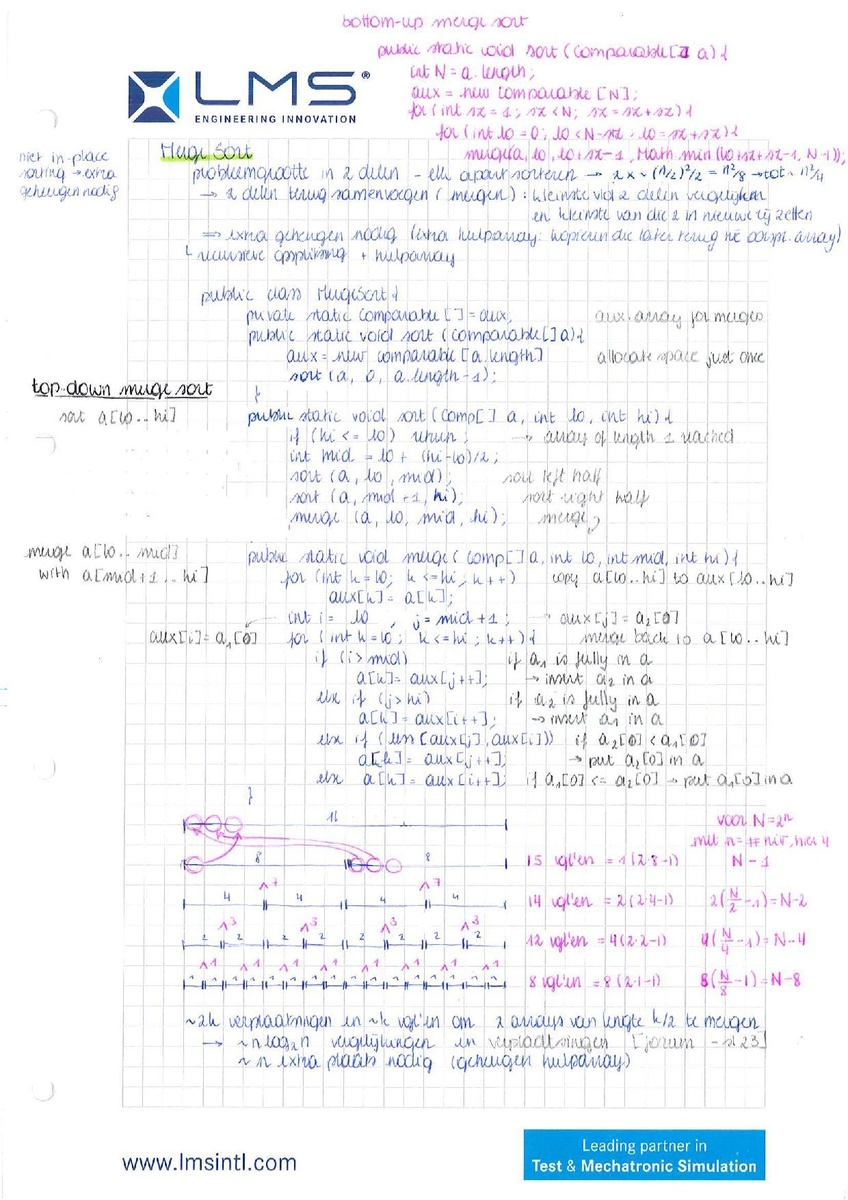 bottom-up merge sort
public static void sort (comparable[] a) {
int N = a.length;
aux = new comparable [N];
for (int sz = 1; sz < N; sz = sz + sz) {
for (int lo = 0; lo < N-sz; lo = sz + sz) {
merge(a, lo, lo+sz-1, Math min (lo+sz+sz-1, N-1));
LMS®
ENGINEERING INNOVATION
niet in-place
sorting → extra
geheugen nodig
Merge Sort
probleemgrootte in 2 delen - elk apart sorteren → 2 x ~ (n/2)²/2 = n²/8 → tot ~ n²/4
→ 2 delen terug samenvoegen (mergen) : kleinste v/d 2 delen vergelijken
en kleinste van die 2 in nieuwe rij zetten
⇒ extra geheugen nodig (extra hulparray: kopieren die later terug nr oorspr. array)
recursieve opsplitsing + hulparray
public class MergeSort {
private static comparable [] = aux; aux. array for merges
public static void sort (comparable [] a) {
aux = new comparable [a.length] allocate space just once
sort (a, 0, a.length-1);
}
top-down merge sort
sort a[lo..hi] public static void sort (comp[] a, int lo, int hi) {
if (hi <= lo) return ; → array of length 1 reached
int mid = lo + (hi-lo)/2;
sort (a, lo, mid); sort left half
sort (a, mid+1, hi); sort right half
merge (a, lo, mid, hi); merge
merge a[lo..mid] public static void merge (comp[] a, int lo, int mid, int hi) {
with a[mid+1..hi] for (int k=lo; k <= hi; k++) copy a[lo..hi] to aux[lo..hi]
aux[k] = a[k];
int i = lo , j = mid+1 ; → aux[j] = a₂[0]
aux[i] = a₁[0] for (int k=lo; k <= hi; k++) { merge back to a[lo..hi]
if (i > mid) if a₁ is fully in a
a[k] = aux[j++]; → insert a₂ in a
else if (j > hi) if a₂ is fully in a
a[k] = aux[i++]; → insert a₁ in a
else if (less(aux[j], aux[i])) if a₂[0] < a₁[0]
a[k] = aux[j++]; → put a₂[0] in a
else a[k] = aux[i++]; if a₁[0] <= a₂[0] → put a₁[0] in a
}
16 voor N=2ⁿ
met n = # niv., hier 4
8 8 15 vgl'en = 1(2·8-1) N-1
7 7
4 4 4 4 14 vgl'en = 2(2·4-1) 2(N/2 -1) = N-2
3 3 3 3
2 2 2 2 2 2 2 2 12 vgl'en = 4(2·2-1) 4(N/4 -1) = N-4
1 1 1 1 1 1 1 1
1 1 1 1 1 1 1 1 1 1 1 1 1 1 1 1 8 vgl'en = 8(2·1-1) 8(N/8 -1) = N-8
~2k verplaatsingen en ~k vgl'en om 2 arrays van lengte k/2 te mergen
→ ~n log₂n vergelijkingen en verplaatsingen
~ n extra plaats nodig (geheugen hulparray)
www.lmsintl.com
Leading partner in
Test & Mechatronic Simulation